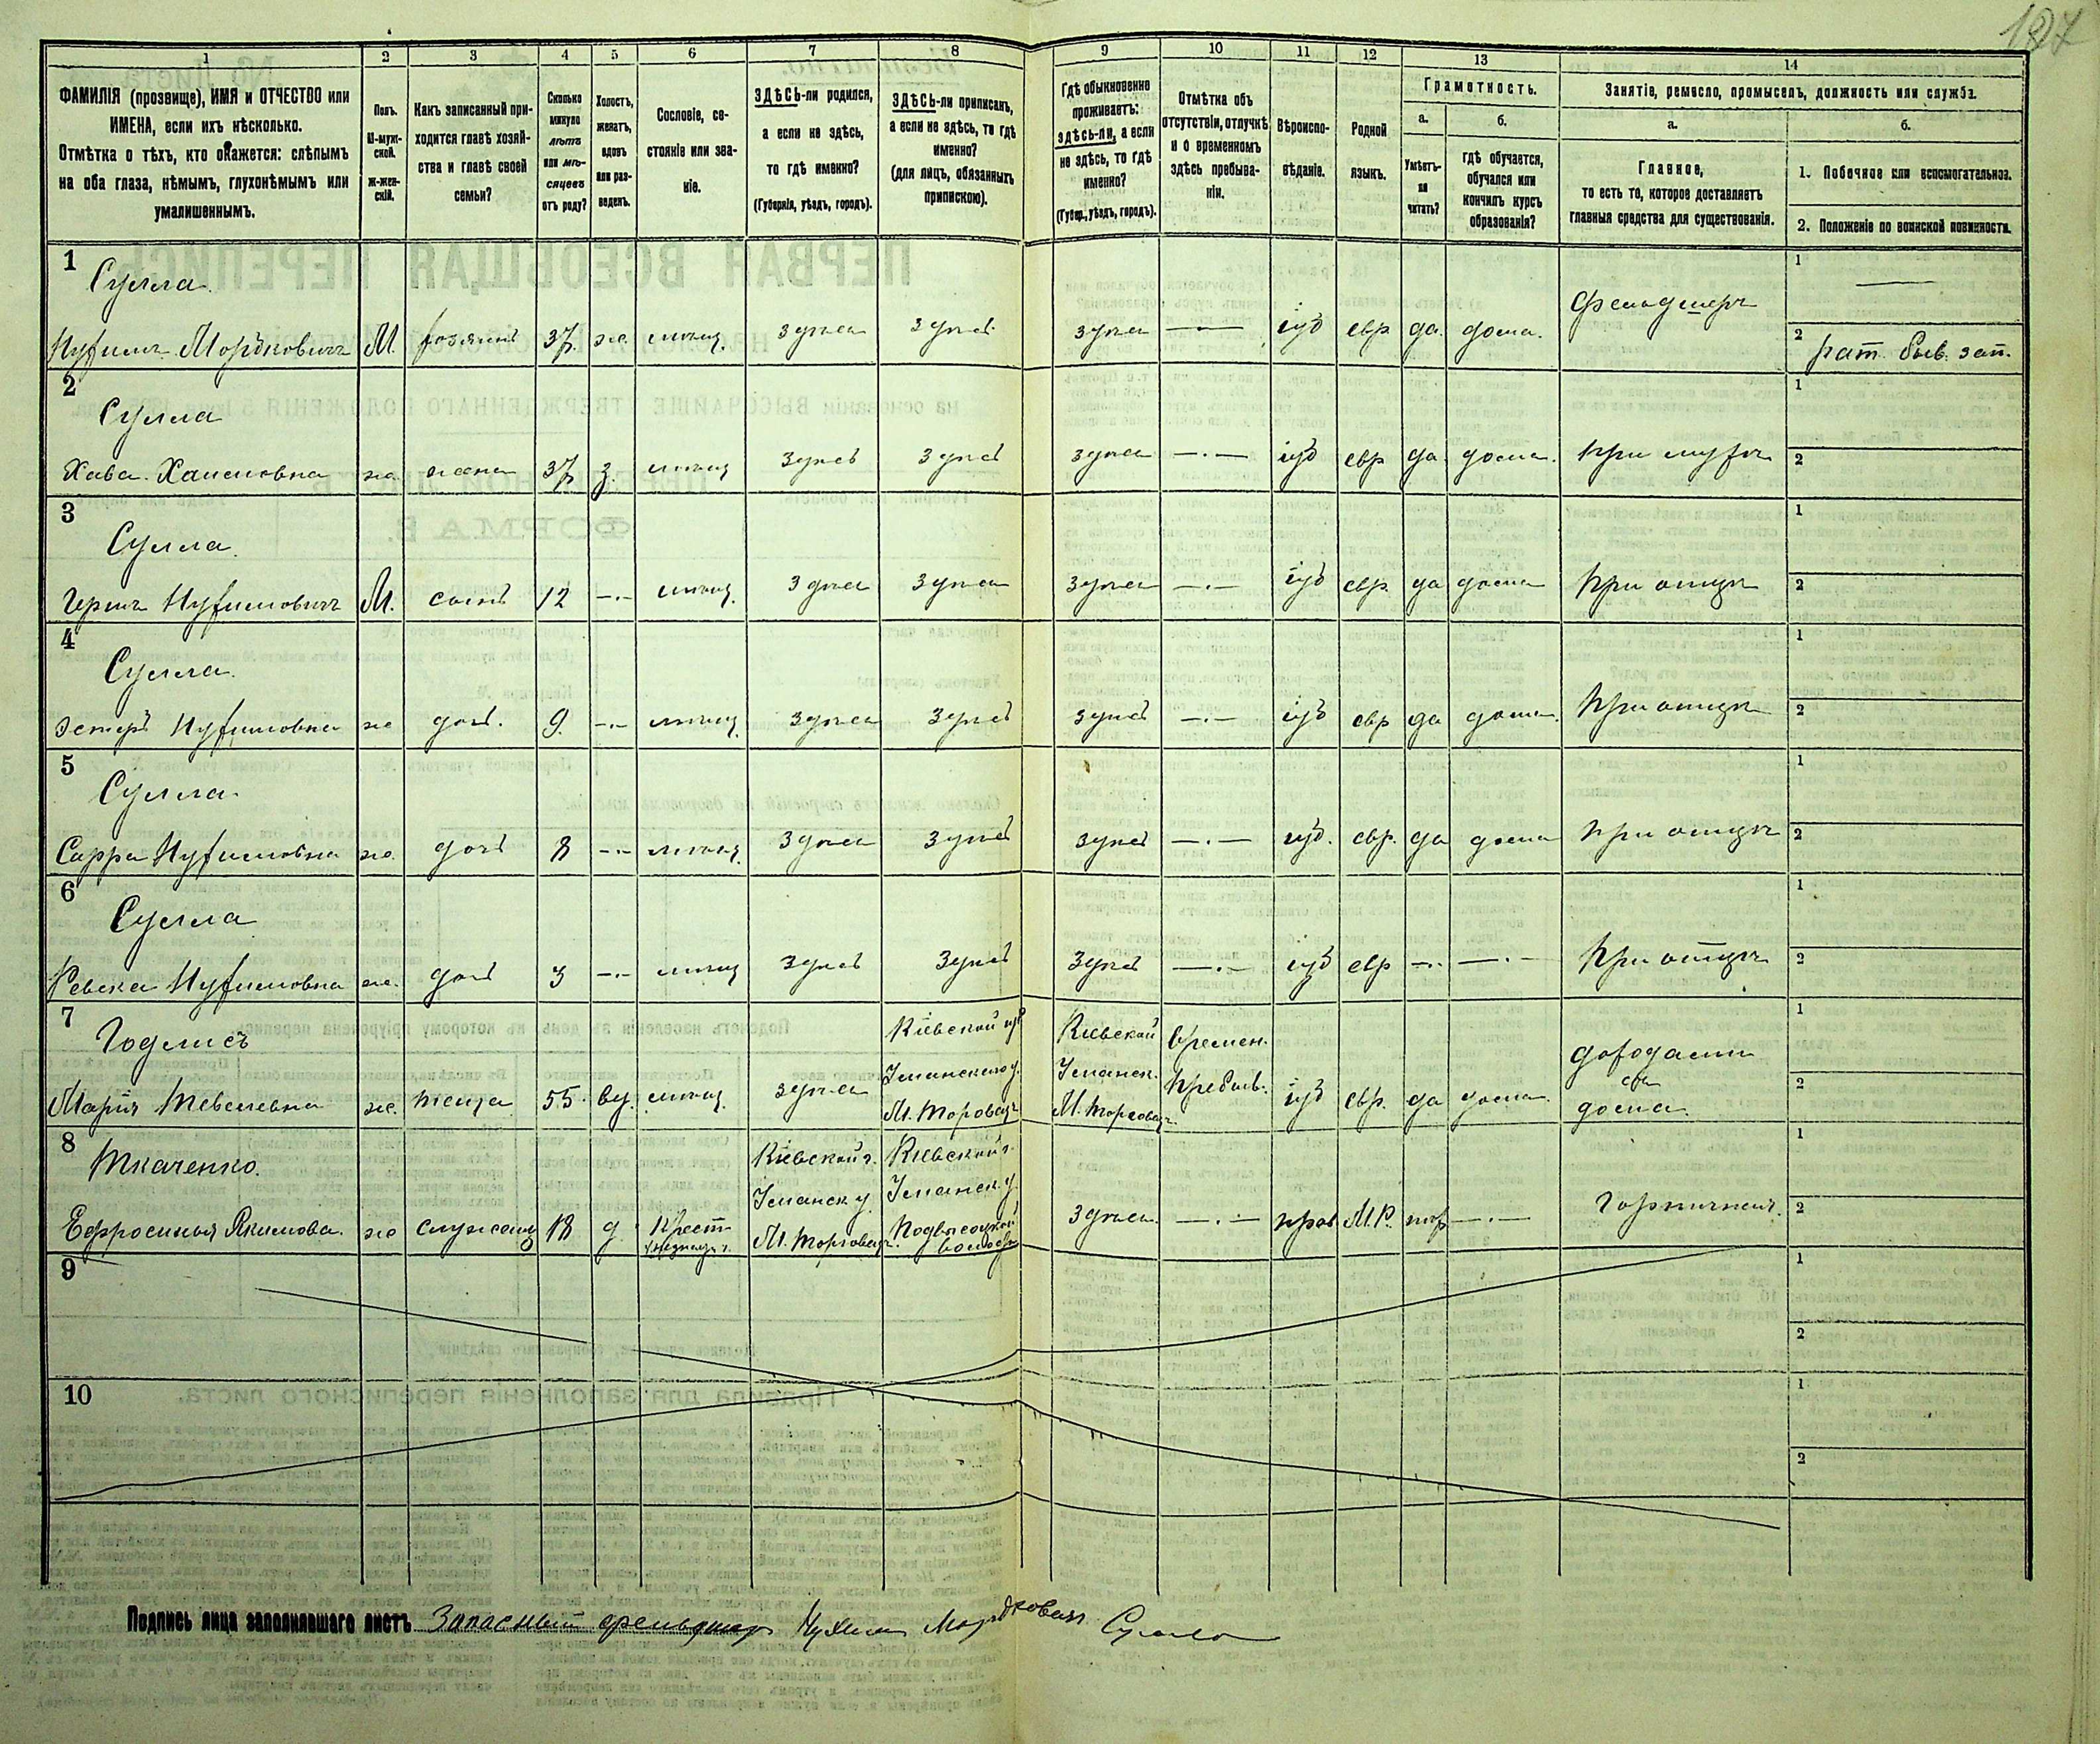 197
1 2 3 4 5 6 7 8 9 10 11 12 13 14
ФАМИЛІЯ (прозвище), ИМЯ и ОТЧЕСТВО или
ИМЕНА, если ихъ нѣсколько.
Отмѣтка о тѣхъ, кто окажется: слѣпымъ
на оба глаза, нѣмымъ, глухонѣмымъ или
умалишеннымъ.
Полъ.
М-муж-
ской.
Ж-жен-
скій.
Какъ записанный при-
ходится главѣ хозяй-
ства и главѣ своей
семьи?
Сколько
минуло
лѣтъ
или мѣ-
сяцевъ
отъ роду?
Холостъ,
женатъ,
вдовъ
или раз-
веденъ.
Сословіе, со-
стояніе или зва-
ніе.
ЗДѢСЬ-ли родился,
а если не здѣсь,
то гдѣ именно?
(Губернія, уѣздъ, городъ).
ЗДѢСЬ-ли приписанъ,
а если не здѣсь, то гдѣ
именно?
(для лицъ, обязанныхъ
припискою).
Гдѣ обыкновенно
проживаетъ:
здѣсь-ли, а если
не здѣсь, то гдѣ
именно?
(Губер., уѣздъ, городъ).
Отмѣтка объ
отсутствіи, отлучкѣ
и о временномъ
здѣсь пребыва-
ніи.
Вѣроиспо-
вѣданіе.
Родной
языкъ.
Грамотность.
а.
Умѣетъ-
ли
читать?
б.
гдѣ обучается,
обучался или
кончилъ курсъ
образованія?
Занятіе, ремесло, промыселъ, должность или служба.
а.
Главное,
то есть то, которое доставляетъ
главныя средства для существованія.
б.
1. Побочное или вспомогательное.
2. Положеніе по воинской повинности.
1
Сулла
Нухимъ Мордковичъ М. хозяинъ 37 ж. мѣщ. здѣсь здѣсь здѣсь —·— іуд евр да. дома. фельдшеръ
1 —
2 рат. быв. зап.
2
Сулла
Хава Хаимовна ж. жена 37 з. мѣщ здѣсь здѣсь здѣсь —·— іуд евр да дома. При мужѣ
1
2
3
Сулла
Гершъ Нухимовичъ М. сынъ 12 —·— мѣщ. здѣсь здѣсь здѣсь —·— іуд евр. да дома При отцѣ
1
2
4
Сулла
Эстеръ Нухимовна ж дочь. 9. —·— мѣщ здѣсь здѣсь здѣсь —·— іуд евр да дома. При отцѣ
1
2
5
Сулла
Сарра Нухимовна ж. дочь 8 —·— мѣщ. здѣсь здѣсь здѣсь —·— іуд. евр. да дома При отцѣ
1
2
6
Сулла
Ревека Нухимовна ж. дочь 3 —·— мѣщ здѣсь здѣсь здѣсь —·— іуд евр —·— —·— При отцѣ
1
2
7
Годлисъ
Марія Тевелевна ж. теща 55 вд. мѣщ. здѣсь
Кіевской губ
Уманского у.
М. Торговицъ
Кіевской
Уманск.
М. Торговицъ.
Времен.
Пребыв.
іуд евр. да дома.
доходами
съ
дома.
1
2
8
Ткаченко.
Ефросинья Якимова. ж служащ 18 д Крест
Кіевской г.
Уманск у
М. Торговицъ.
Кіевской г.
Уманск. у
Подвысоцкой
волости
здѣсь. —·— прав М.Р. —·— Горничная.
1
2
9
1
2
10
1
2
Подпись лица заполнявшаго листъ Запасный фельдшеръ Нухим Мордкович Сулла